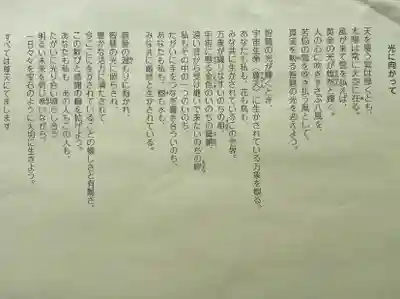 光に向かって
天を覆う雲は厚くとも、
太陽は常に大空に在る。
風が来て雲を払えば、
黄金の光が燦然と輝く。
人の心に吹きすさぶ八風を、
苦悩の雲を吹き払う風として、
真実を観る智慧の光を迎えよう。
智慧の光が輝くとき、
宇宙生命(尊天)に生かされている万象を観る。
あなたも私も、花も鳥も、
みな共に生かされているこの世界、
万象が織りなすいのちの相、
宇宙に懸る金色のいのちの曼荼羅、
遠い昔から受け継ぎ来たいのちの
私もその中の一つのいのち、
たがいに手をつなぎ輝き合ういのち、
あなたも私も、樹も水も、
みな共に と生かされている。
慈愛の温もりに抱かれ、
智慧の光に照らされ、
豊かな活力に満たされて
今ここに生かされていることの嬉しさと有難さ。
この歓びと感謝の輪を拡げよう。
あなたも私も あの人もこの人も、
たがいに光り合い照らし合う
明るい未来を心に描きながら、
一日々々を宝石のように大切に生きよう。
すべては尊天にてまします